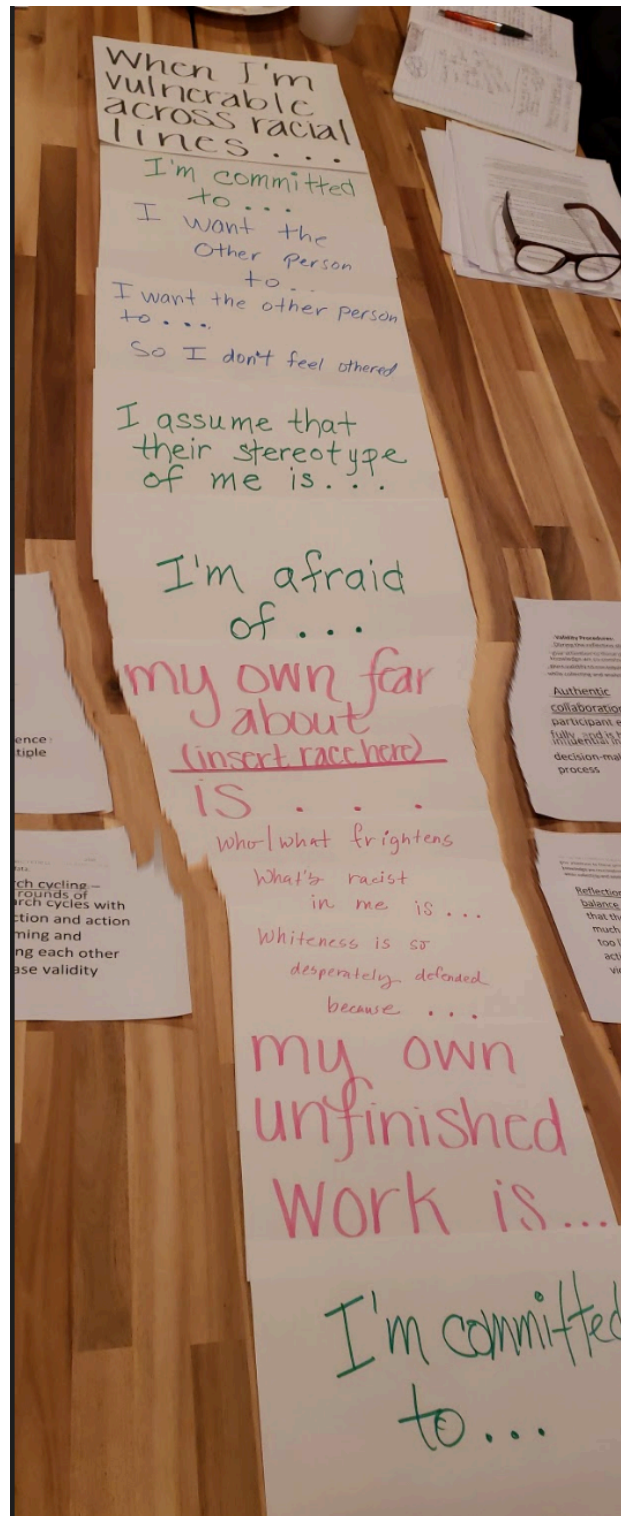 When I'm
vulnerable
across racial
lines . . .
I'm committed
to . . .
I want the
Other Person
to . .
I want the other person
to . . . .
So I don't feel othered
I assume that
their stereotype
of me is. . .
I'm afraid
of . . .
my own fear
about
(insert race here)
is . . .
Who/what frightens
What's racist
in me is ...
Whiteness is so
desperately defended
because ...
my own
unfinished
work is ...
I'm committed
to . . .
ence
tiple
ch cycling –
rounds of
rch cycles with
ction and action
ming and
ng each other
ase validity
Validity Procedures:
Authentic
collaboration
participant e
fully and is h
influential in
decision-mak
process
Reflection
balance
that the
much
too l
acti
vie